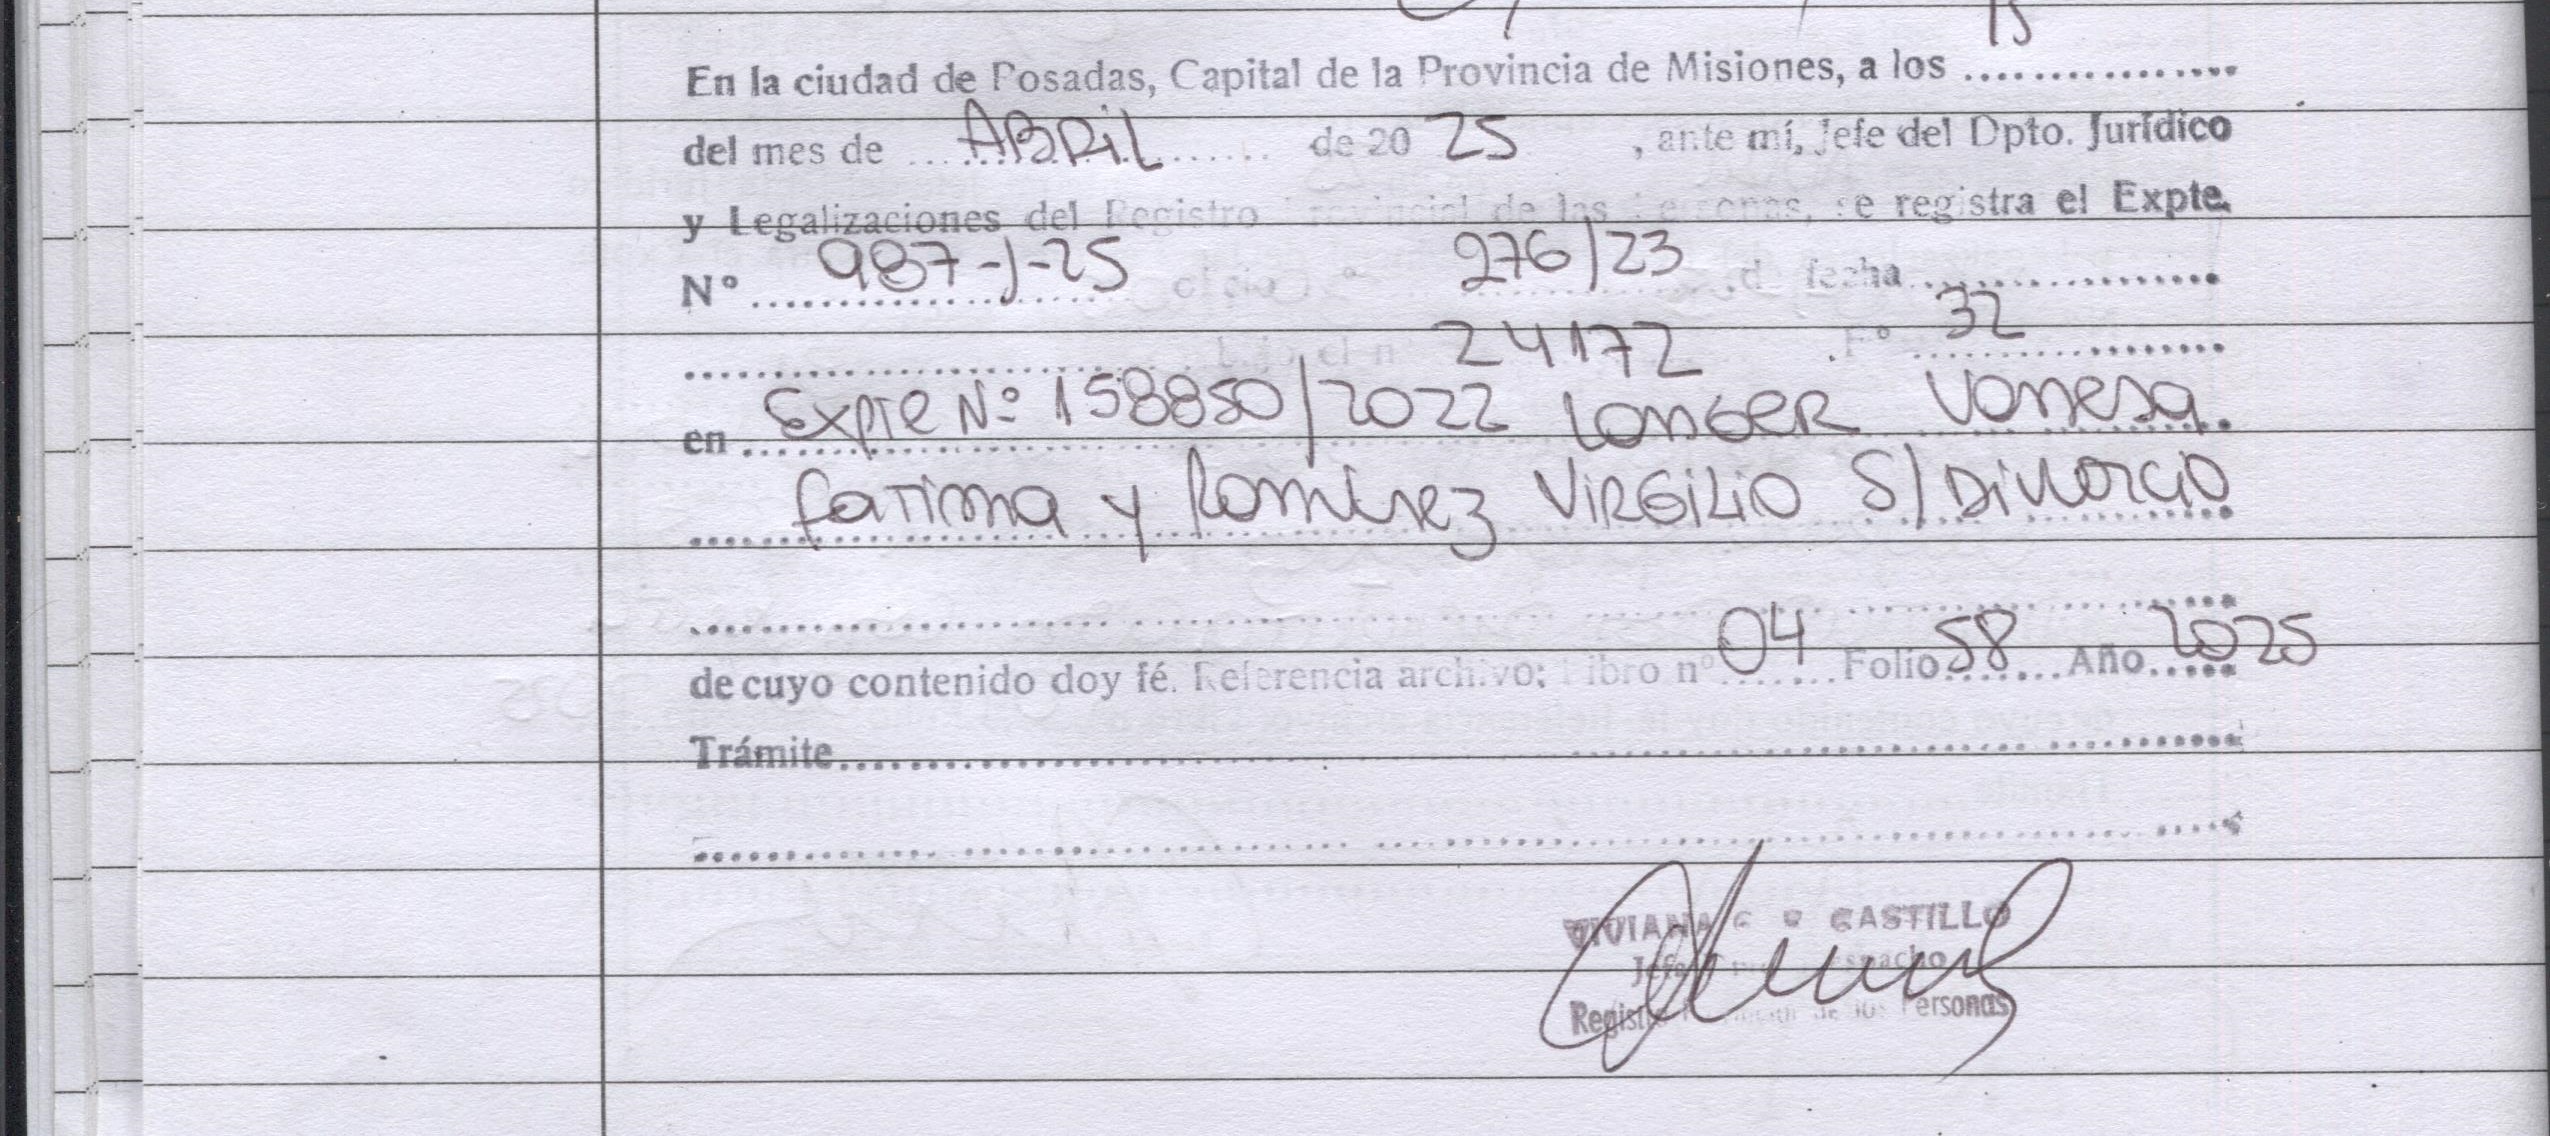 15
En la ciudad de Posadas, Capital de la Provincia de Misiones, a los ................
del mes de ....ABRIL........ de 20 25 , ante mí, Jefe del Dpto. Jurídico
y Legalizaciones del Registro Provincial de las Personas, se registra el Expte.
N° 987-J-25 oficio n° 276/23 de fecha ................
................ bajo el n° 24172 F° 32
en Expte Nº 158850/2022 LONGER Vanesa.
Fatima y Ramirez VIRGILIO S/ DIVORCIO
de cuyo contenido doy fé. Referencia archivo: Libro nº 04 Folio 58 Año 2025
Trámite................
VIVIANA CASTILLO
Jefa Despacho
Registro Provincial de las Personas